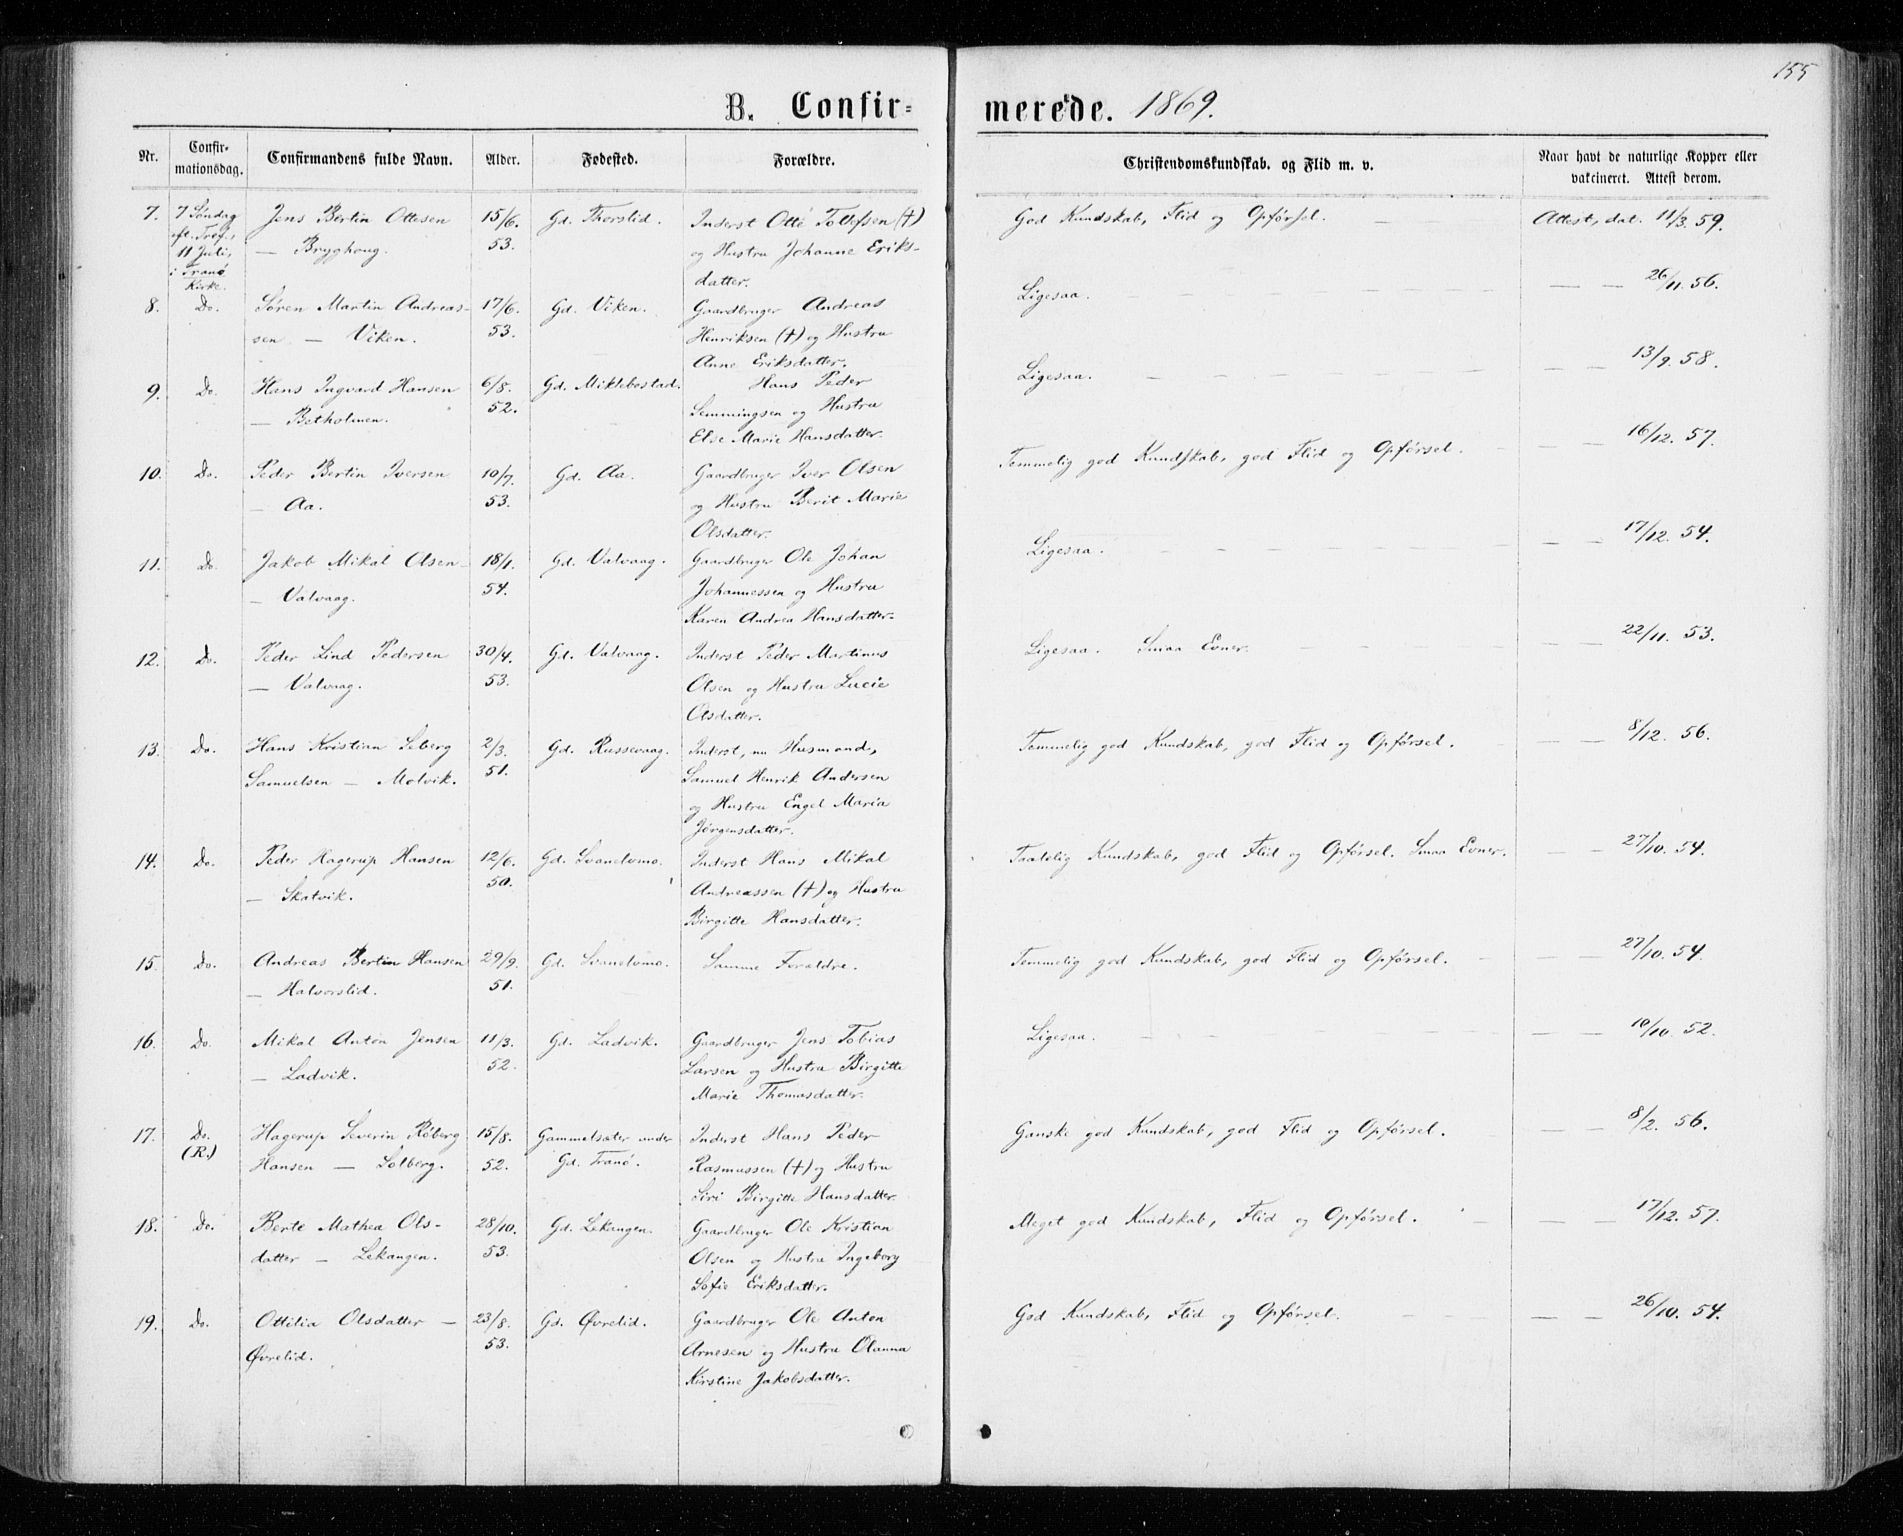 155
B. Confir=
merede. 1869.
Nr.
Confir-
mationsdag.
Confirmandens fulde Navn.
Alder.
Fødested.
Forældre.
Christendomskundskab. og Flid m. v.
Naar havt de naturlige Kopper eller
vakcineret. Attest derom.
7. 7 Søndag Jens Bertin Ottesen 15/6. Gd. Thorslid. Inderst Otte Tollefsen (†) God Kundskab, Flid og Opførsel. — Attest, dat. 11/3. 59.
eft. Tref., — Bryghoug. 53. og Hustru Johanne Eriks-
11 Juli, datter.
i Tranø
Kirke.
8. Do. Søren Martin Andreas- 17/6. Gd. Viken. Gaardbruger Andreas Ligesaa. — — 26/11. 56.
sen — Viken. 53. Henriksen (†) og Hustru
Anne Eriksdatter.
9. Do. Hans Ingvard Hansen 6/8. Gd. Miklebostad. Hans Peder Ligesaa. — — 13/9. 58.
— Betholmen. 52. Lemmingsen og Hustru
Else Marie Hansdatter.
10. Do. Peder Bertin Iversen 10/7. Gd. Aa. Gaardbruger Iver Olsen Temmelig god Kundskab, god Flid og Opførsel. — — 16/12. 57.
— Aa. 53. og Hustru Berit Marie
Olsdatter.
11. Do. Jakob Mikal Olsen 18/1. Gd. Valvaag. Gaardbruger Ole Johan Ligesaa. — — 17/12. 54.
— Valvaag. 54. Johannessen og Hustru
Karen Andrea Hansdatter.
12. Do. Peder Lind Pedersen 30/4. Gd. Valvaag. Inderst Peder Martinus Ligesaa. Smaa Evner. — — 22/11. 53.
— Valvaag. 53. Olsen og Hustru Lucie
Olsdatter.
13. Do. Hans Kristian Seberg 2/3. Gd. Russevaag. Inderst, nu Husmand, Temmelig god Kundskab, god Flid og Opførsel. — — 8/12. 56.
Samuelsen — Molvik. 51. Samuel Henrik Andersen
og Hustru Engel Maria
Jørgensdatter.
14. Do. Peder Hagerup Hansen 12/6. Gd. Svanelvmo. Inderst Hans Mikal Taalelig Kundskab, god Flid og Opførsel. Smaa Evner. — — 27/10. 54.
— Skatvik. 50. Andreassen (†) og Hustru
Birgitte Hansdatter.
15. Do. Andreas Bertin Hansen 29/9. Gd. Svanelvmo. Samme Forældre. Temmelig god Kundskab, god Flid og Opførsel. — — 27/10. 54.
— Halvorslid. 51.
16. Do. Mikal Anton Jensen 11/3. Gd. Ladvik. Gaardbruger Jens Tobias Ligesaa. — — 10/10. 52.
— Ladvik. 52. Larsen og Hustru Birgitte
Marie Thomasdatter.
17. Do. Hagerup Severin Røberg 15/8. Gammelsæter under Inderst Hans Peder Ganske god Kundskab, god Flid og Opførsel. — — 8/2. 56.
(R.) Hansen — Solberg. 52. Gd. Tranø. Rasmussen (†) og Hustru
Siri Birgitte Hansdatter.
18. Do. Berte Mathea Ols- 28/10. Gd. Lekangen. Gaardbruger Ole Kristian Meget god Kundskab, Flid og Opførsel. — — 17/12. 57.
datter — Lekangen. 53. Olsen og Hustru Ingeborg
Sofie Eriksdatter.
19. Do. Ottilia Olsdatter — 23/8. Gd. Øvrelid. Gaardbruger Ole Anton God Kundskab, Flid og Opførsel. — — 26/10. 54.
Øvrelid. 53. Arnesen og Hustru Olanna
Kirstine Jakobsdatter.